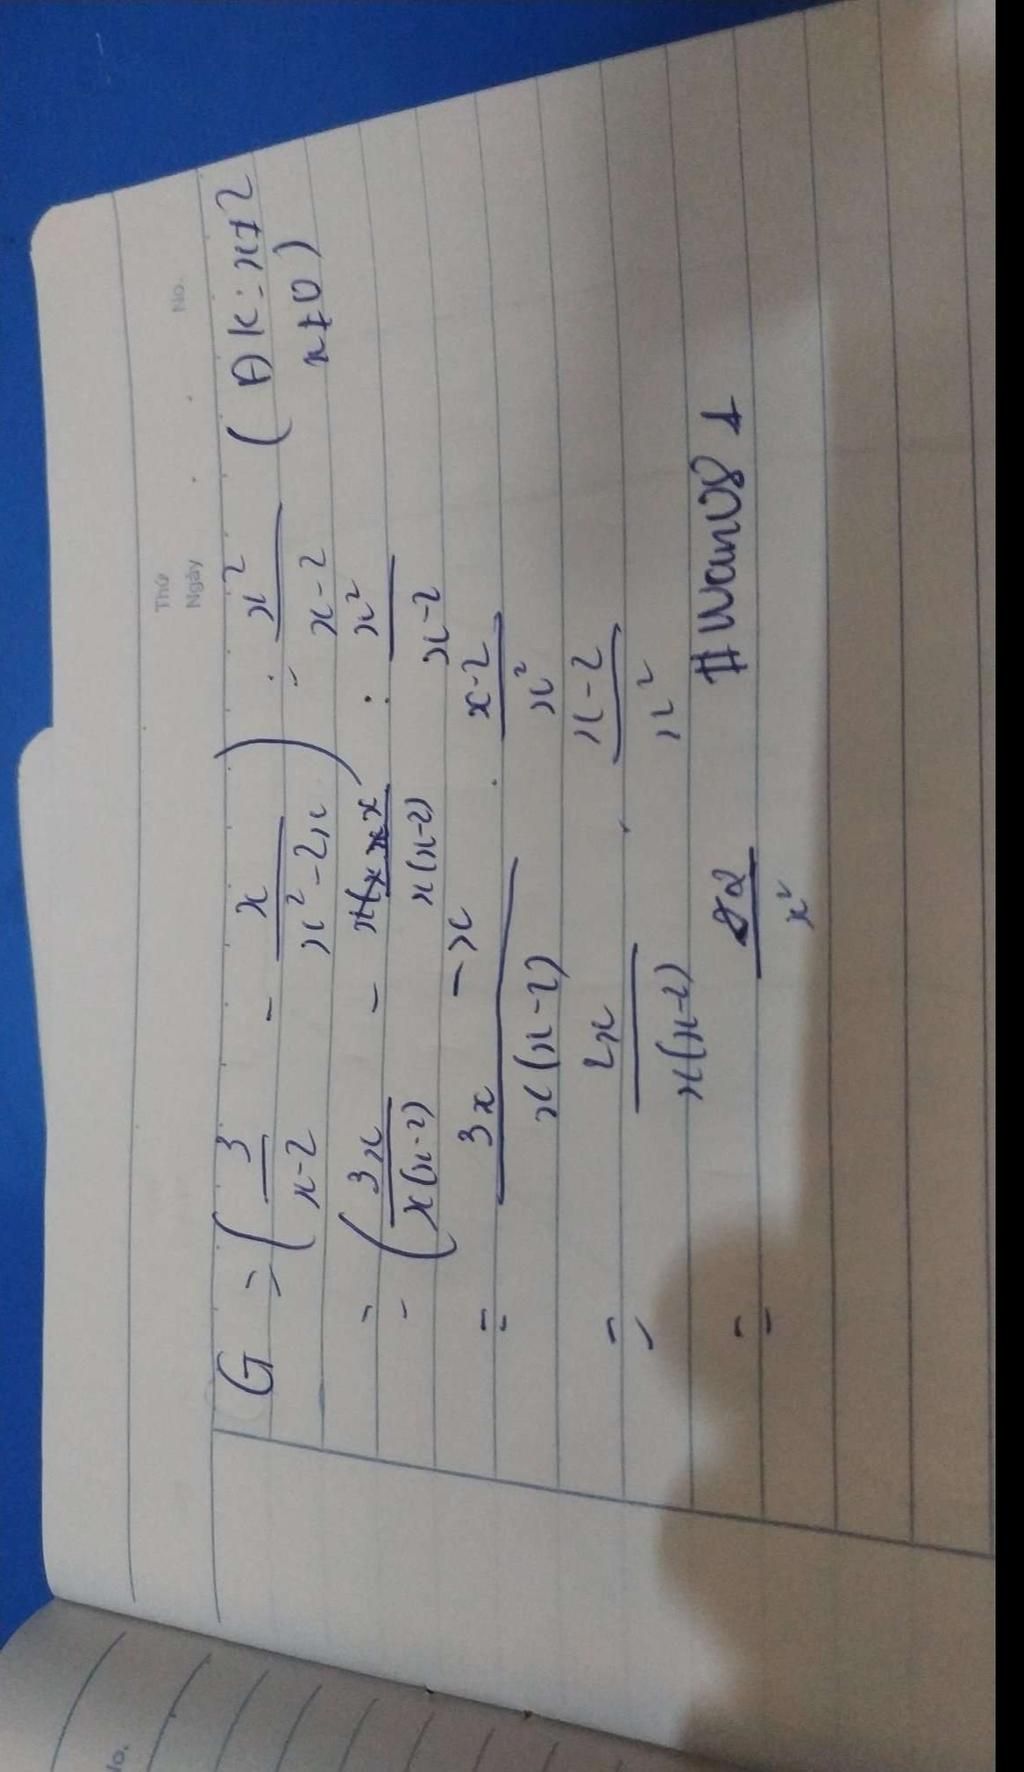 Thứ
Ngày
No.
G = ( 3/(x-2) - x/(x²-2x) ) : x²/(x-2) ( ĐK: x≠2
x≠0 )
= ( 3x/(x(x-2)) - x/(x(x-2)) ) : x²/(x-2)
= (3x - x)/(x(x-2)) . (x-2)/x²
= 2x/(x(x-2)) . (x-2)/x²
= 2/x²
No.